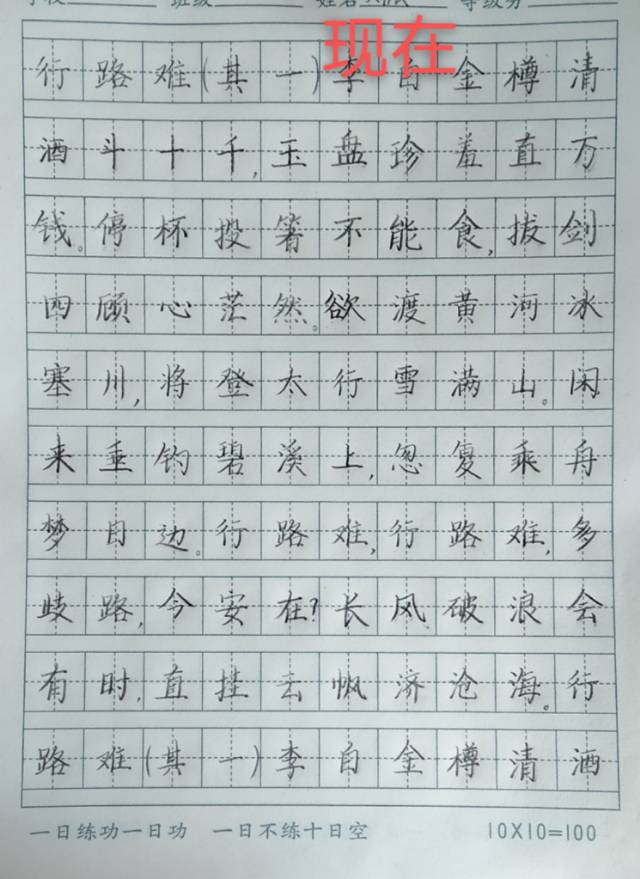 现在
行路难(其一)李白金樽清
酒斗十千,玉盘珍羞直万
钱。停杯投箸不能食,拔剑
四顾心茫然。欲渡黄河冰
塞川,将登太行雪满山。闲
来垂钓碧溪上,忽复乘舟
梦日边。行路难,行路难,多
歧路,今安在?长风破浪会
有时,直挂云帆济沧海。行
路难(其一)李白金樽清酒
一日练功一日功 一日不练十日空 10X10=100